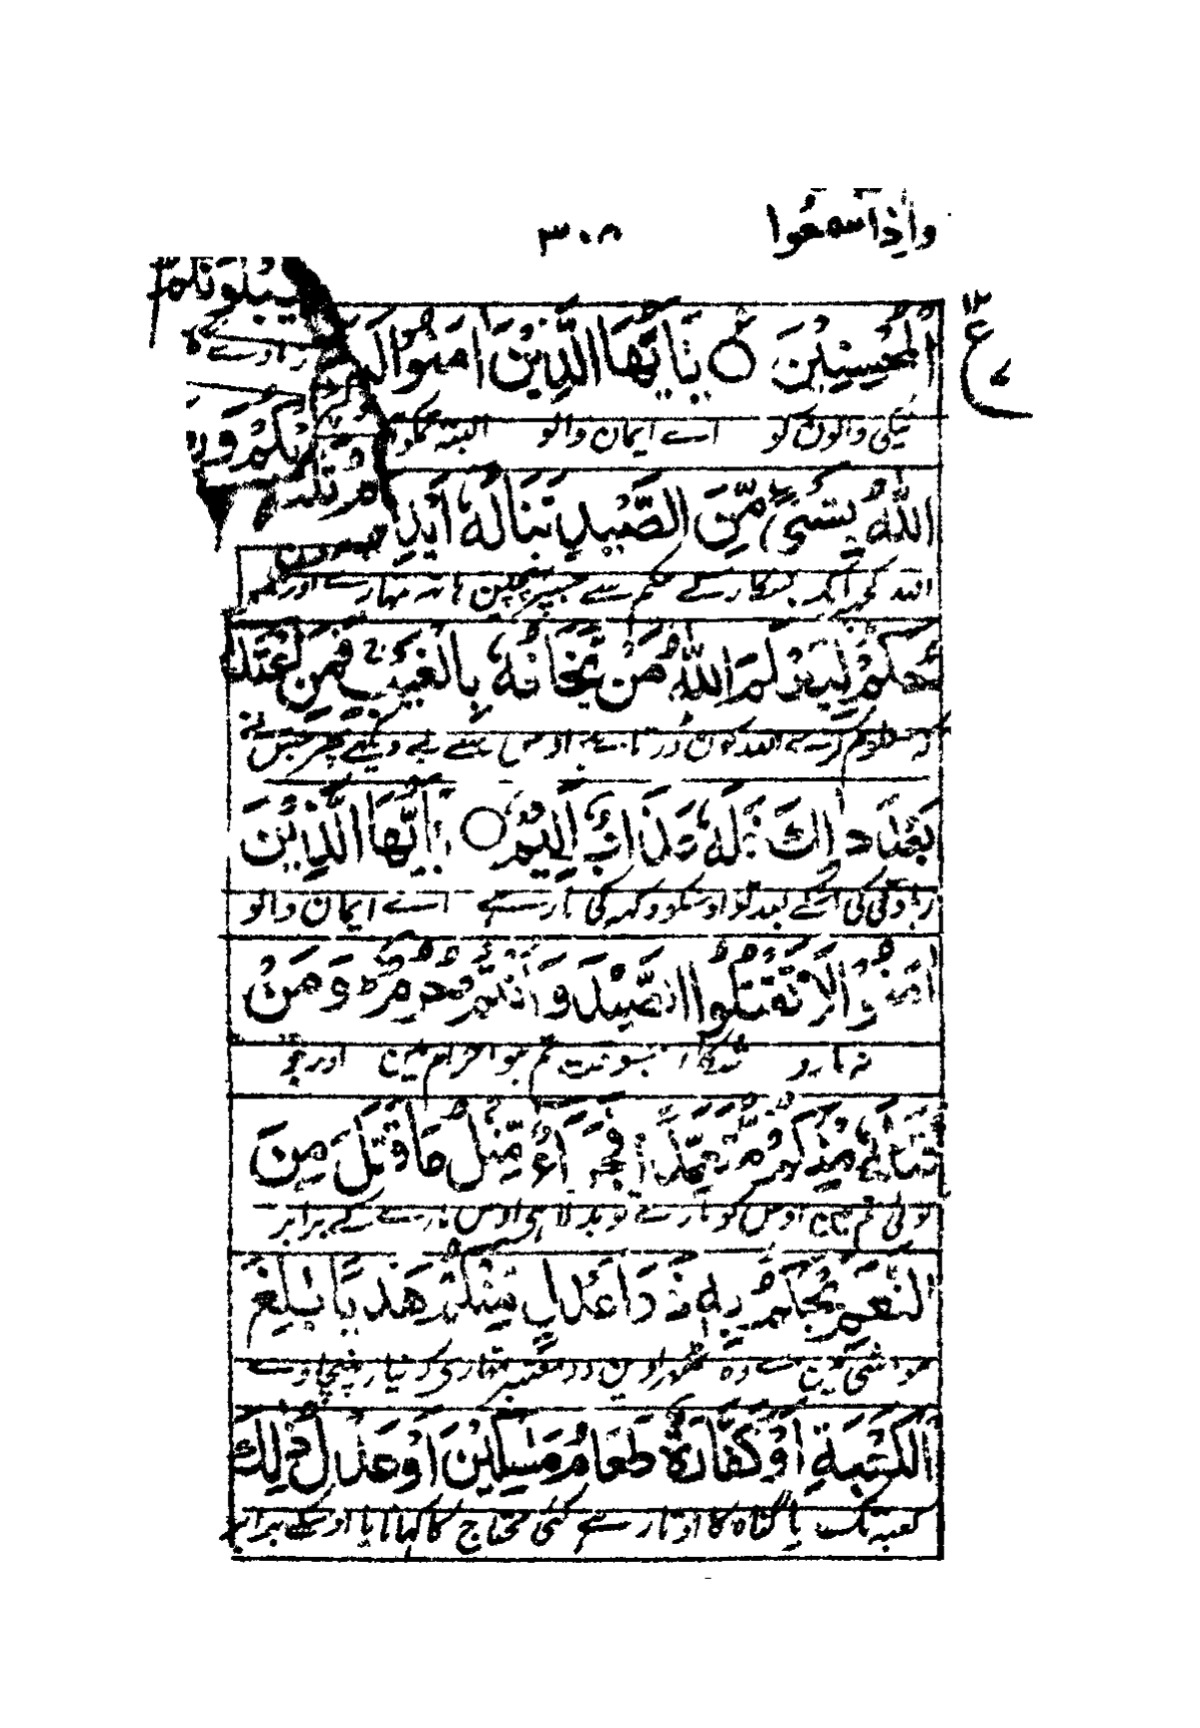 واذاسمعوا ٣٠٨
الْمُحْسِنِيْنَ ○ يٰٓاَيُّهَا الَّذِيْنَ اٰمَنُوْا لَيَبْلُوَنَّكُمُ
نیکی والون کو اے ایمان والو البتہ
اللّٰهُ بِشَیْءٍ مِّنَ الصَّيْدِ تَنَالُهٗٓ اَيْدِ
اللہ کچھ ایک شکار کے حکم سے جسپر پہنچین ہاتھ تمہارے اور
حُكُمْ لِيَعْلَمَ اللّٰهُ مَنْ يَّخَافُهٗ بِالْغَيْبِ فَمَنِ اعْتَدٰى
معلوم کرے اللہ کون ڈرتا ہے اوس سے بے دیکھے پھر جس نے
بَعْدَ ذٰلِكَ فَلَهٗ عَذَابٌ اَلِيْمٌ ○ يٰٓاَيُّهَا الَّذِيْنَ
زیادتی کی اسکے بعد تو اوسکو دکہہ کی مار ہے اے ایمان والو
اٰمَنُوْا لَا تَقْتُلُوا الصَّيْدَ وَاَنْتُمْ حُرُمٌ ؕ وَمَنْ
نہ مارو شکار جسوقت تم ہو احرام مین اور جو
قَتَلَهٗ مِنْكُمْ مُّتَعَمِّدًا فَجَزَآءٌ مِّثْلُ مَا قَتَلَ مِنَ
کوئی تم مین اوس کو مارے تو بدلا ہی اوس مارے کے برابر
النَّعَمِ يَحْكُمُ بِهٖ ذَوَا عَدْلٍ مِّنْكُمْ هَدْيًا بٰلِغَ
مواشی مین سے وہ ٹھہراوین دو معتبر تمہاری کہ نیاز پہنچاوے
الْكَعْبَةِ اَوْ كَفَّارَةٌ طَعَامُ مَسٰكِيْنَ اَوْ عَدْلُ ذٰلِكَ
کعبہ تک یا گناہ کا اوتار ہے کئی محتاج کا کہانا یا اوسکے برابر